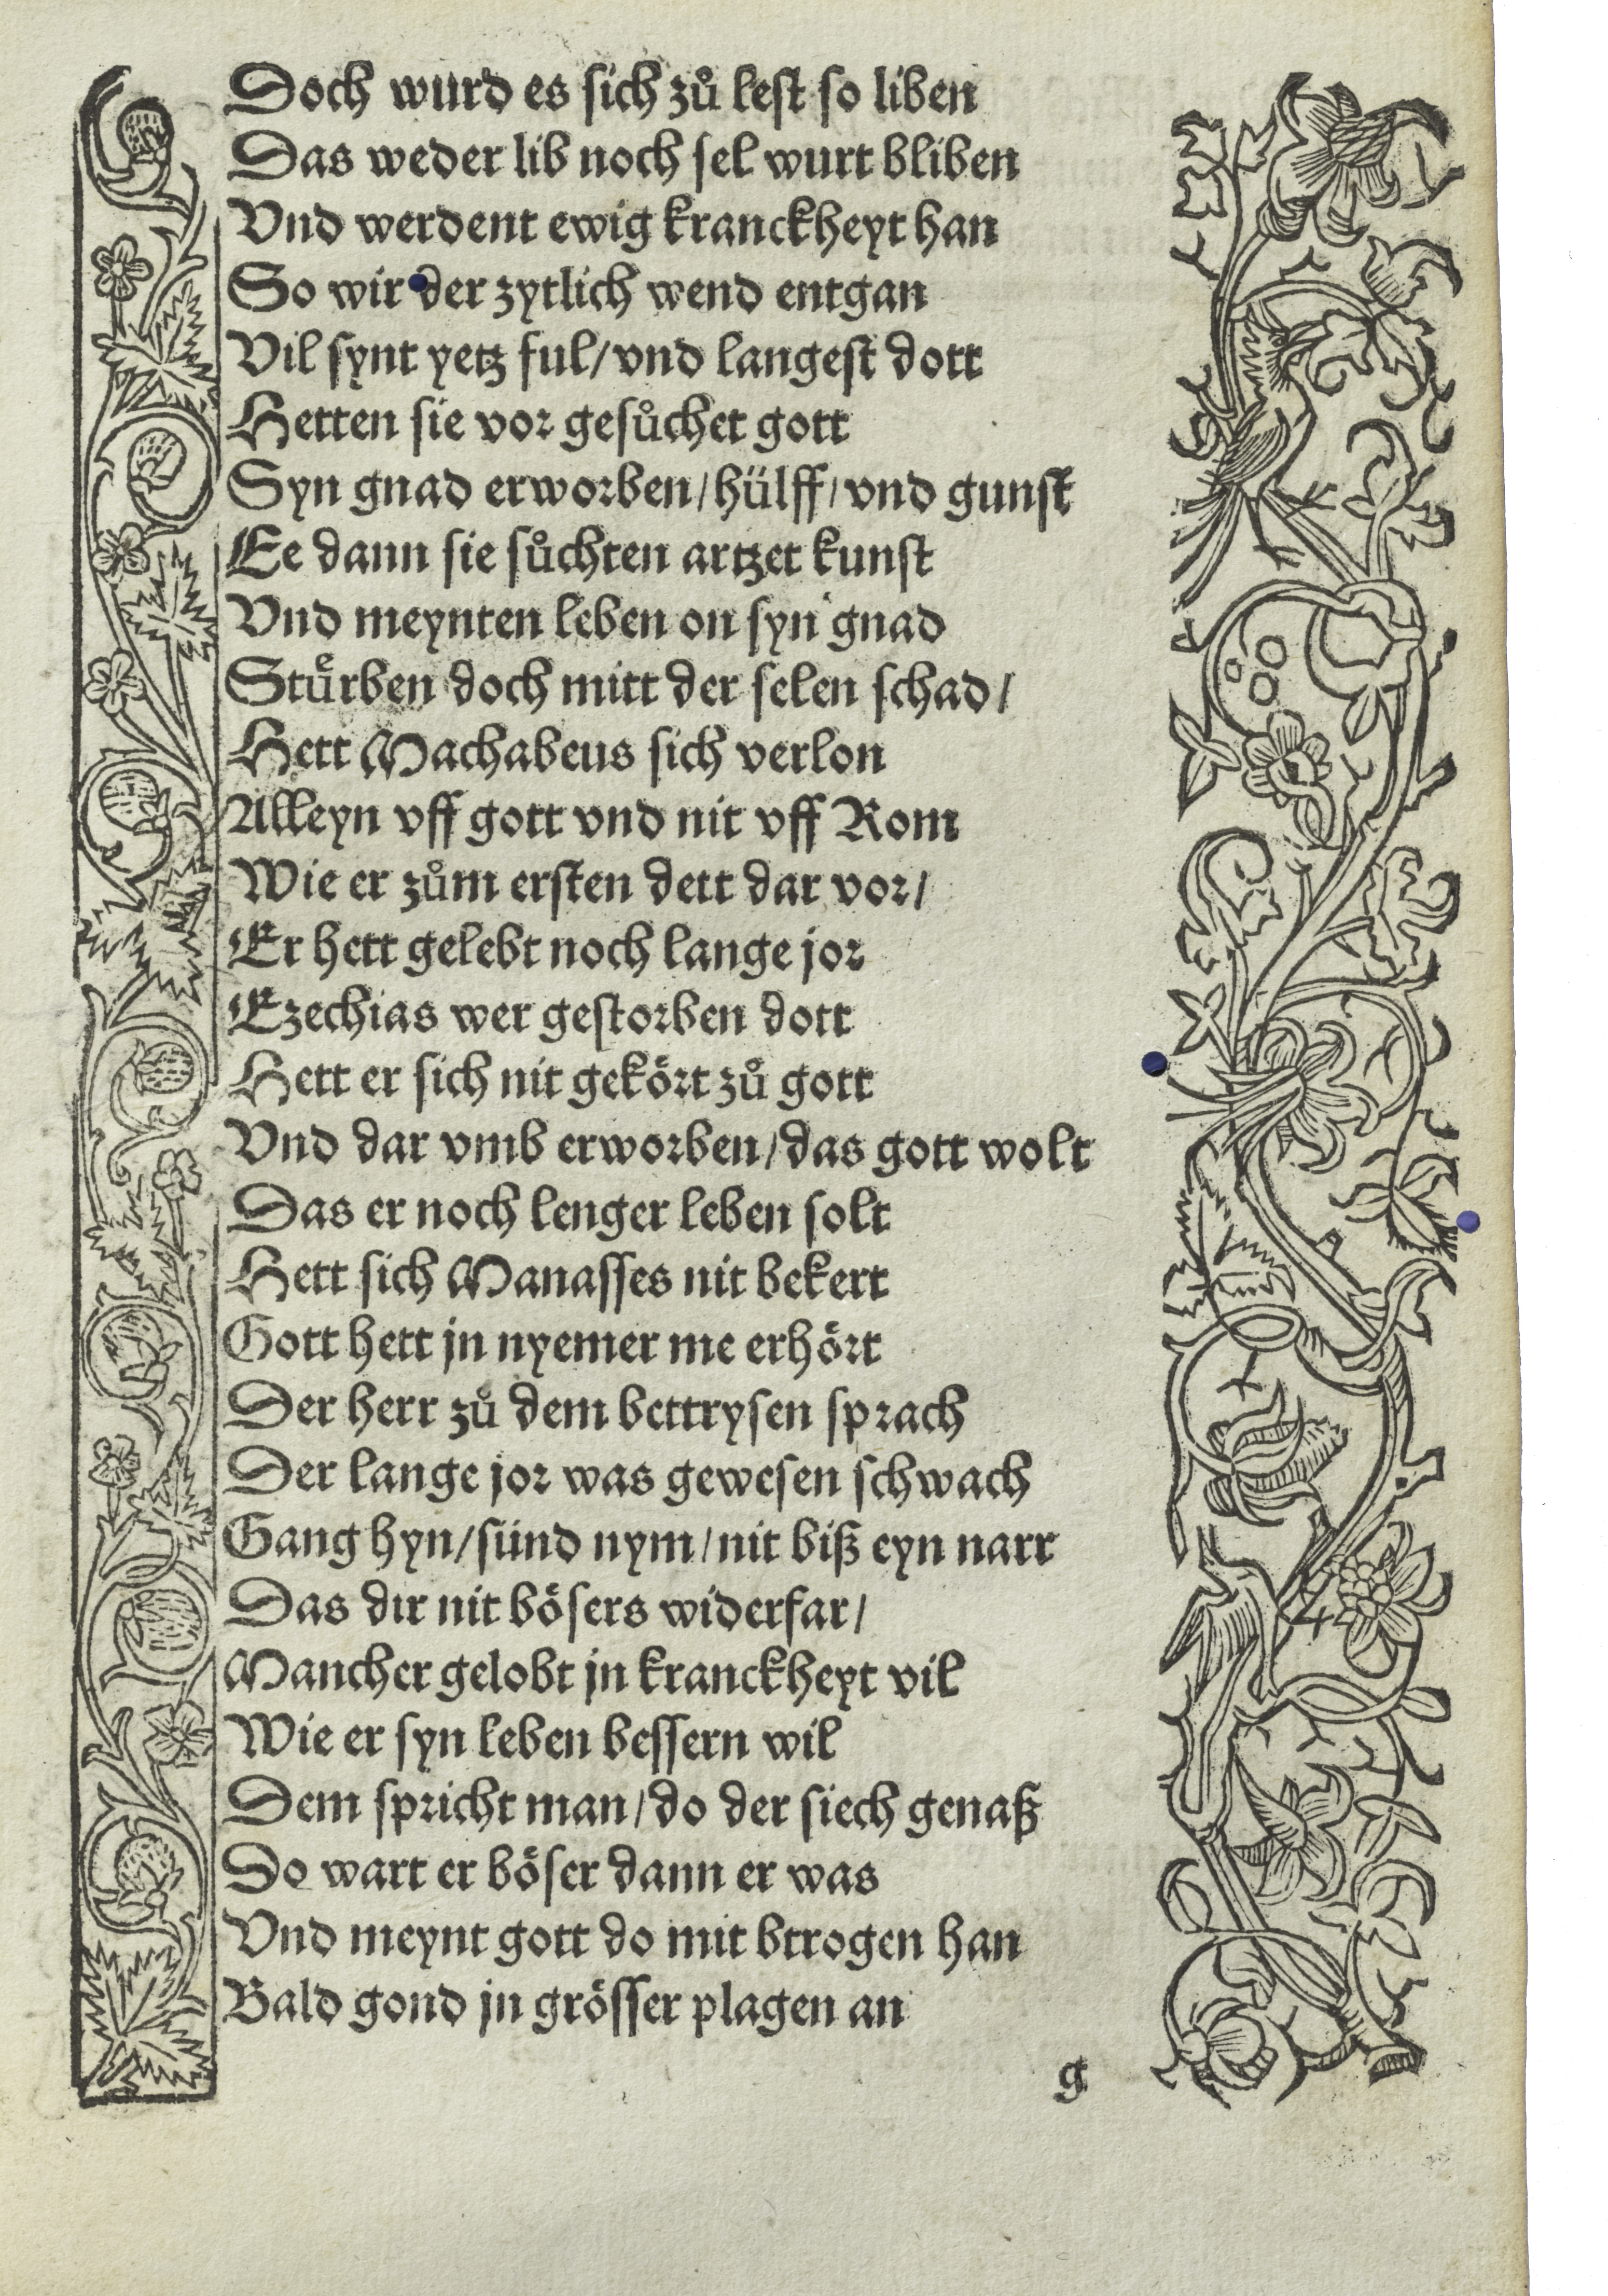 Doch wurd es sich zů lest so liben
Das weder lib noch sel wurt bliben
Vnd werdent ewig kranckheyt han
So wir der zytlich wend entgan
Vil synt yetz ful/vnd langest dott
Hetten sie vor gesůchet gott
Syn gnad erworben/hülff/vnd gunst
Ee dann sie sůchten artzet kunst
Vnd meynten leben on syn gnad
Stuͤrben doch mitt der selen schad/
Hett Machabeus sich verlon
Alleyn vff gott vnd nit vff Rom
Wie er zům ersten dett dar vor/
Er hett gelebt noch lange jor
Ezechias wer gestorben dott
Hett er sich nit gekört zů gott
Vnd dar vmb erworben/das gott wolt
Das er noch lenger leben solt
Hett sich Manasses nit bekert
Gott hett jn nyemer me erhört
Der herr zů dem bettrysen sprach
Der lange jor was gewesen schwach
Gang hyn/sünd nym/nit biß eyn narr
Das dir nit bösers widerfar/
Mancher gelobt jn kranckheyt vil
Wie er syn leben bessern wil
Dem spricht man/do der siech genaß
Do wart er böser dann er was
Vnd meynt gott do mit btrogen han
Bald gond jn grösser plagen an
g